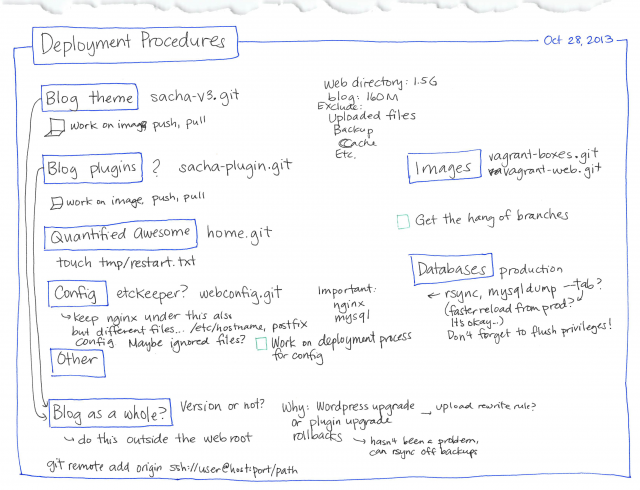 Deployment Procedures
Oct 28, 2013
Blog theme sacha-v3.git
work on image, push, pull
Web directory: 1.5G
blog: 160M
Exclude:
Uploaded files
Backup
Cache
Etc.
Blog plugins ? sacha-plugin.git
work on image, push, pull
Images vagrant-boxes.git
vagrant-web.git
Get the hang of branches
Quantified Awesome home.git
touch tmp/restart.txt
Config etckeeper? webconfig.git
Keep nginx under this also
but different files... /etc/hostname, postfix
config Maybe ignored files?
Important:
nginx
mysql
Work on deployment process
for config
Databases production
← rsync, mysqldump --tab?
(faster reload from prod?
Its okay...)
Don't forget to flush privileges!
Other
Blog as a whole? Version or not?
do this outside the webroot
Why: Wordpress upgrade → upload rewrite rule?
or plugin upgrade
rollbacks
hasn't been a problem,
can rsync off backups
git remote add origin ssh://user@host:port/path